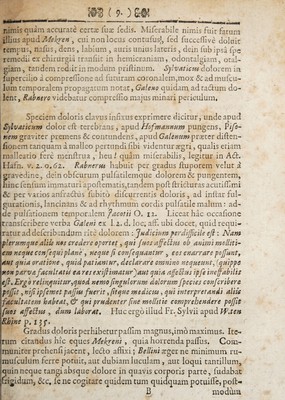 ( 9. )
nimis quàm accuratè certæ suæ sedis. Miserabile nimis fuit fatum
illius apud Mekren, cui non locus contusus, sed successivè doluit
tempus, nasus, dens, labium, auris unius lateris, dein sub ipsâ spe
remedii ex chirurgiâ transiit in hemicraniam, odontalgiam, otal-
giam, tandem rediit in modum pristinum. Sylvaticus dolorem in
supercilio à compressione ad futuram coronalem, mox & ad muscu-
lum temporalem propagatum notat, Galeno quidam ad tactum do-
lent, Rahnero videbatur compressio majus minari periculum.
Speciem doloris clavus insirus exprimere dicitur, unde apud
Sylvaticum dolor est terebians, apud Hofmannum pungens, Piso-
nem graviter prement & contundens, apud Galenum præter disten-
sionem tanquam à malleo pertundi sibi videntur ægri, qualis etiam
malleatio ferè menstrua, heu! quàm miserabilis, legitur in Act.
Hafn. v. 2. o. 62. Rahneru habuit per gradus stuporem velut à
gravedine, dein obscurum pulsatilemque dolorem & pungentem,
hinc sensum immaturi apostematis, tandem post stricturas acutissimi
& per varios anfractus subitò discurrentis doloris, ad instar ful-
gurationis, lancinans & ad rhythmum cordis pulsatile malum: ad-
de pulsationem temporalem Jacotii O. 12. Liceat hâc occasione
transcribere verba Galeni ex l. 2. d. loc. aff. ubi docet, quid requi-
ratur ad describendum ritè dolorem: Judicium perdifficile est: Nam
plerumque aliis nos credere oportet, qui suos affectus ob animi molliti-
em neque consequi planè, neque si consequantur, eos enarrare possunt,
aut quia oratione, quid patiantur, declarare omnino nequeunt, (quippe
non parva facultatis ea res existimatur) aut quia affectus ipse ineffabilis
est. Ergò relinquitur, quod nemo singulorum dolorum species conscribere
possit, nisi ipsemet passus fuerit, sitque medicus, qui interpretandi aliis
facultatem habeat, & qui prudenter sine mollitie comprehendere possit
suos affectus, dum laborat. Huc ergò illud Fr. Sylvii apud W. ten
Rhijne p. 135.
Gradus doloris perhibetur passim magnus, imò maximus. Ite-
rum citandus hîc eques Mekreni, quia horrenda passus. Com-
muniter prehensi jacent, lecto affixi; Bellini æger ne minimum ru-
musculum ferre potuit, aut dubiam luculam, aut loqui tantillum,
quin neque tangi absque dolore in quavis corporis parte, sudabat
frigidum, &c. se ne cogitare quidem tum quidquam potuisse, post-
B
modùm